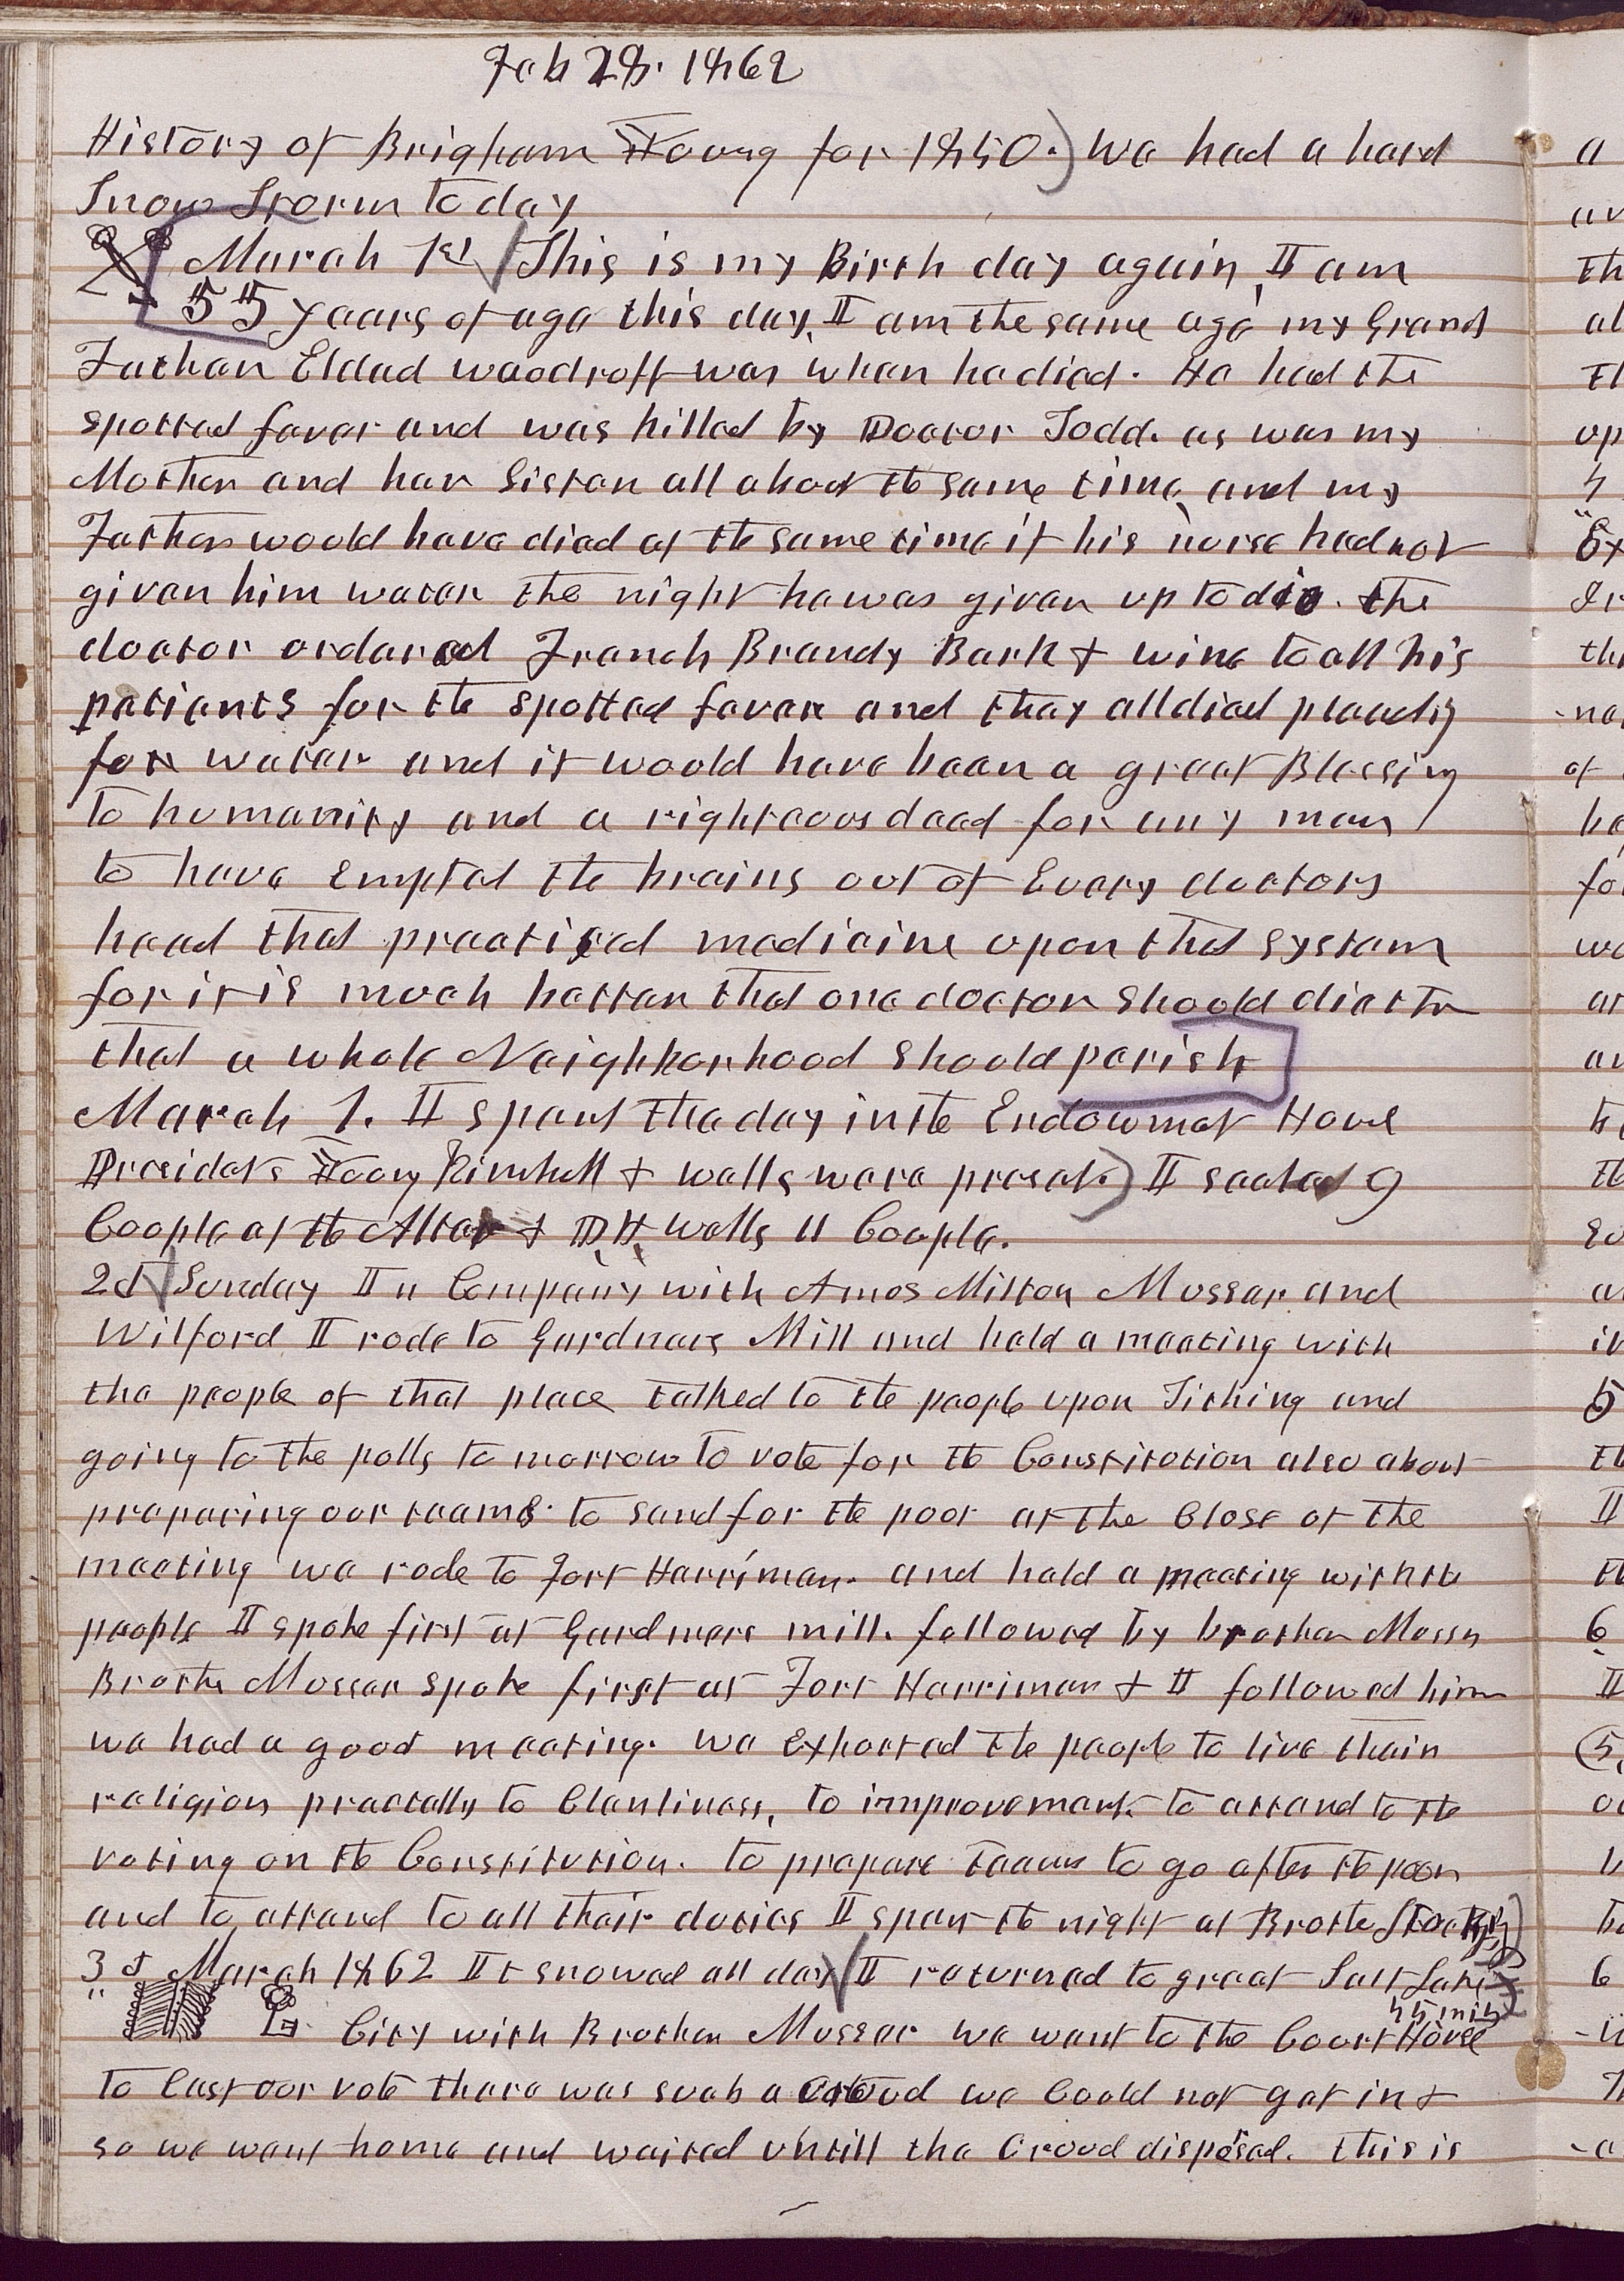 Feb 28. 1862
History of Brigham Young for 1850.) We had a hard
Snow Storm to day
March 1st This is my Birth day again, I am
55 years of age this day, I am the same age my Grand
Father Eldad Woodruff was when he died. He had the
spotted fever and was killed by Doctor Todd. as was my
Mother and her Sister all about the same time, and my
Father would have died at the same time if his nurse had not
given him water the night he was given up to die. the
doctor ordered French Brandy Bark & wine to all his
patients for the spotted fever and they all died pleadig
for water and it would have been a great Blessing
to humanity and a righteous deed for any man
to have Empted the brains out of Every doctors
head that practiced medicine upon that system
for it is much better that one doctor should die ##
that a whole Neighborhood should perish
March 1. I spent the day in the Endowmet House
Presidets Young Kimball & wells were preset.) I sealed 9
Couple at the Altar & D, H, Wells 11 Couple.
2d Sunday In Company with Amos Milton Musser and
Wilford I rode to Gardners Mill and held a meeting with
the people of that place talked to the people upon Tithing and
going to the polls to morrow to vote for the Constitution also about
preparing our teams to send for the poor at the Close of the
meeting we rode to Fort Harriman. and held a meeting with the
people I spoke first at Gardners mill. followed by brother Mussr
Brother Musser spoke first at Fort Harriman & I followed him
we had a good meeting. we Exhorted the people to live their
religion practally to Clenliness, to improvement. to attend to the
voting on the Constitution. to prepare teams to go after the poor
and to attend to all their duties I spent the night at Brother
3d March 1862 It snowed all day I returned to great Salt Lake
45 mils
City with Brother Musser we went to the Court House
To Cast our vote there was such a Croud we Could not get in &
so we went home and waited untill the Croud dispersed. this is